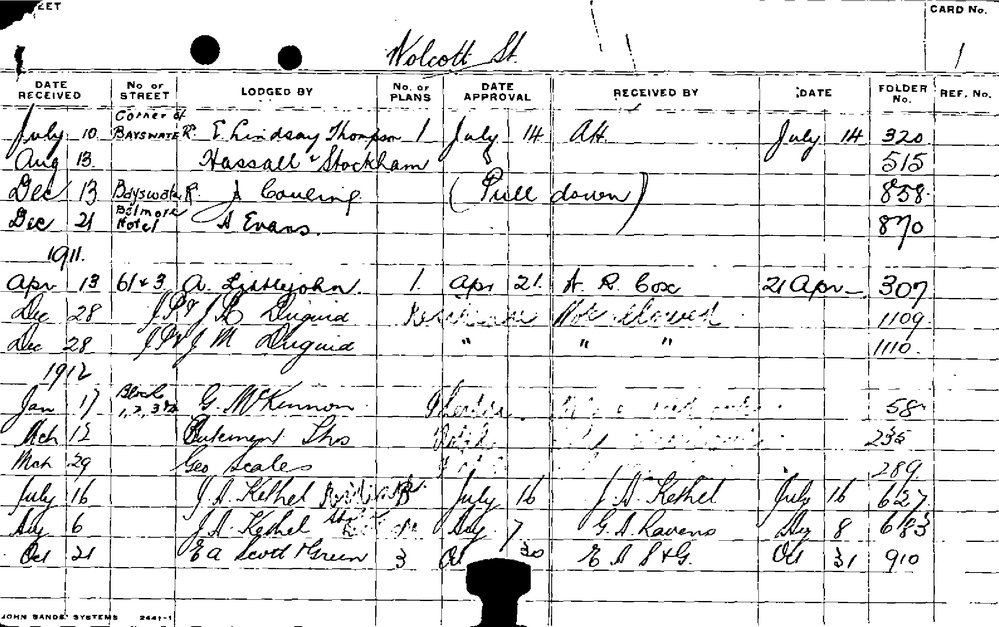 EET
CARD No.
1
Wolcott St.
DATE RECEIVED No. OF STREET LODGED BY No. OF PLANS DATE APPROVAL RECEIVED BY DATE FOLDER No. REF. No.
Corner of
July 10 BAYSWATER Rd. E. Lindsay Thompson 1 July 14 July 14 320
Aug 13 Hassall & Stockham 515
Dec 13 Bayswater R. J Couling (Pull down) 858
Dec 21 Belmore Hotel A Evans. 870
1911.
Apr 13 61 & 3 A. Littlejohn 1. Apr 21. A. R. Cox 21 Apr 307
Dec 28 J P & J M Duguid Not allowed 1109
Dec 28 J P & J M Duguid " " " 1110.
1912
Jan 17 Block 1, 2, 3 G. McKinnon 58
Mch 12 Thos 235
Mch 29 Geo Scales 289
July 16 J. A. Kethel July 16 J. A. Kethel July 16 627
Aug 6 J. A. Kethel Aug 7 G. A. Ravens Aug 8 683
Oct 21 E A Scott & Green 3 Oct 30 E A S & G. Oct 31 910
JOHN SANDS' SYSTEMS 2441-1